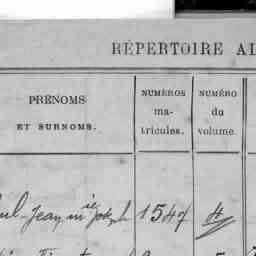 RÉPERTOIRE AL
PRÉNOMS
ET SURNOMS.
NUMÉROS
ma-
tricules.
NUMÉRO
du
volume.
Jean, mie Joseph 1547 4